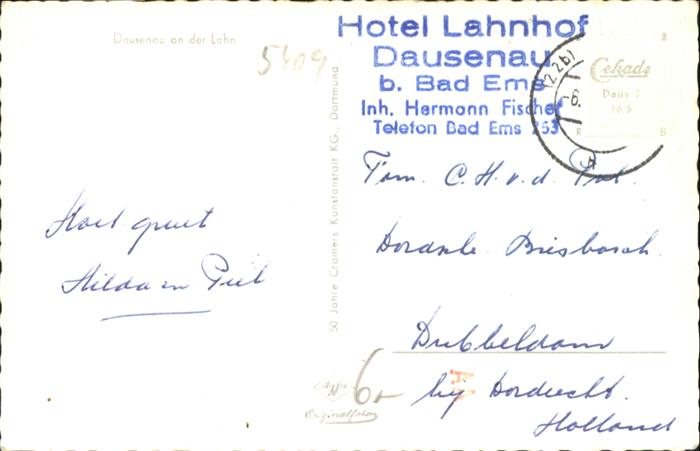 Dausenau an der Lahn
5409
Hotel Lahnhof
Dausenau
b. Bad Ems
Inh. Hermann Fischer
Telefon Bad Ems 253
(22b)
Cekade
Daus 7
365
R
B
50 Jahre Cramers Kunstanstalt KG., Dortmund
Fam. C. H. v. d. Pol.
Hilda en Piet
Dubbeldam
bij Dordrecht.
Holland
Agfa
Originalfoto